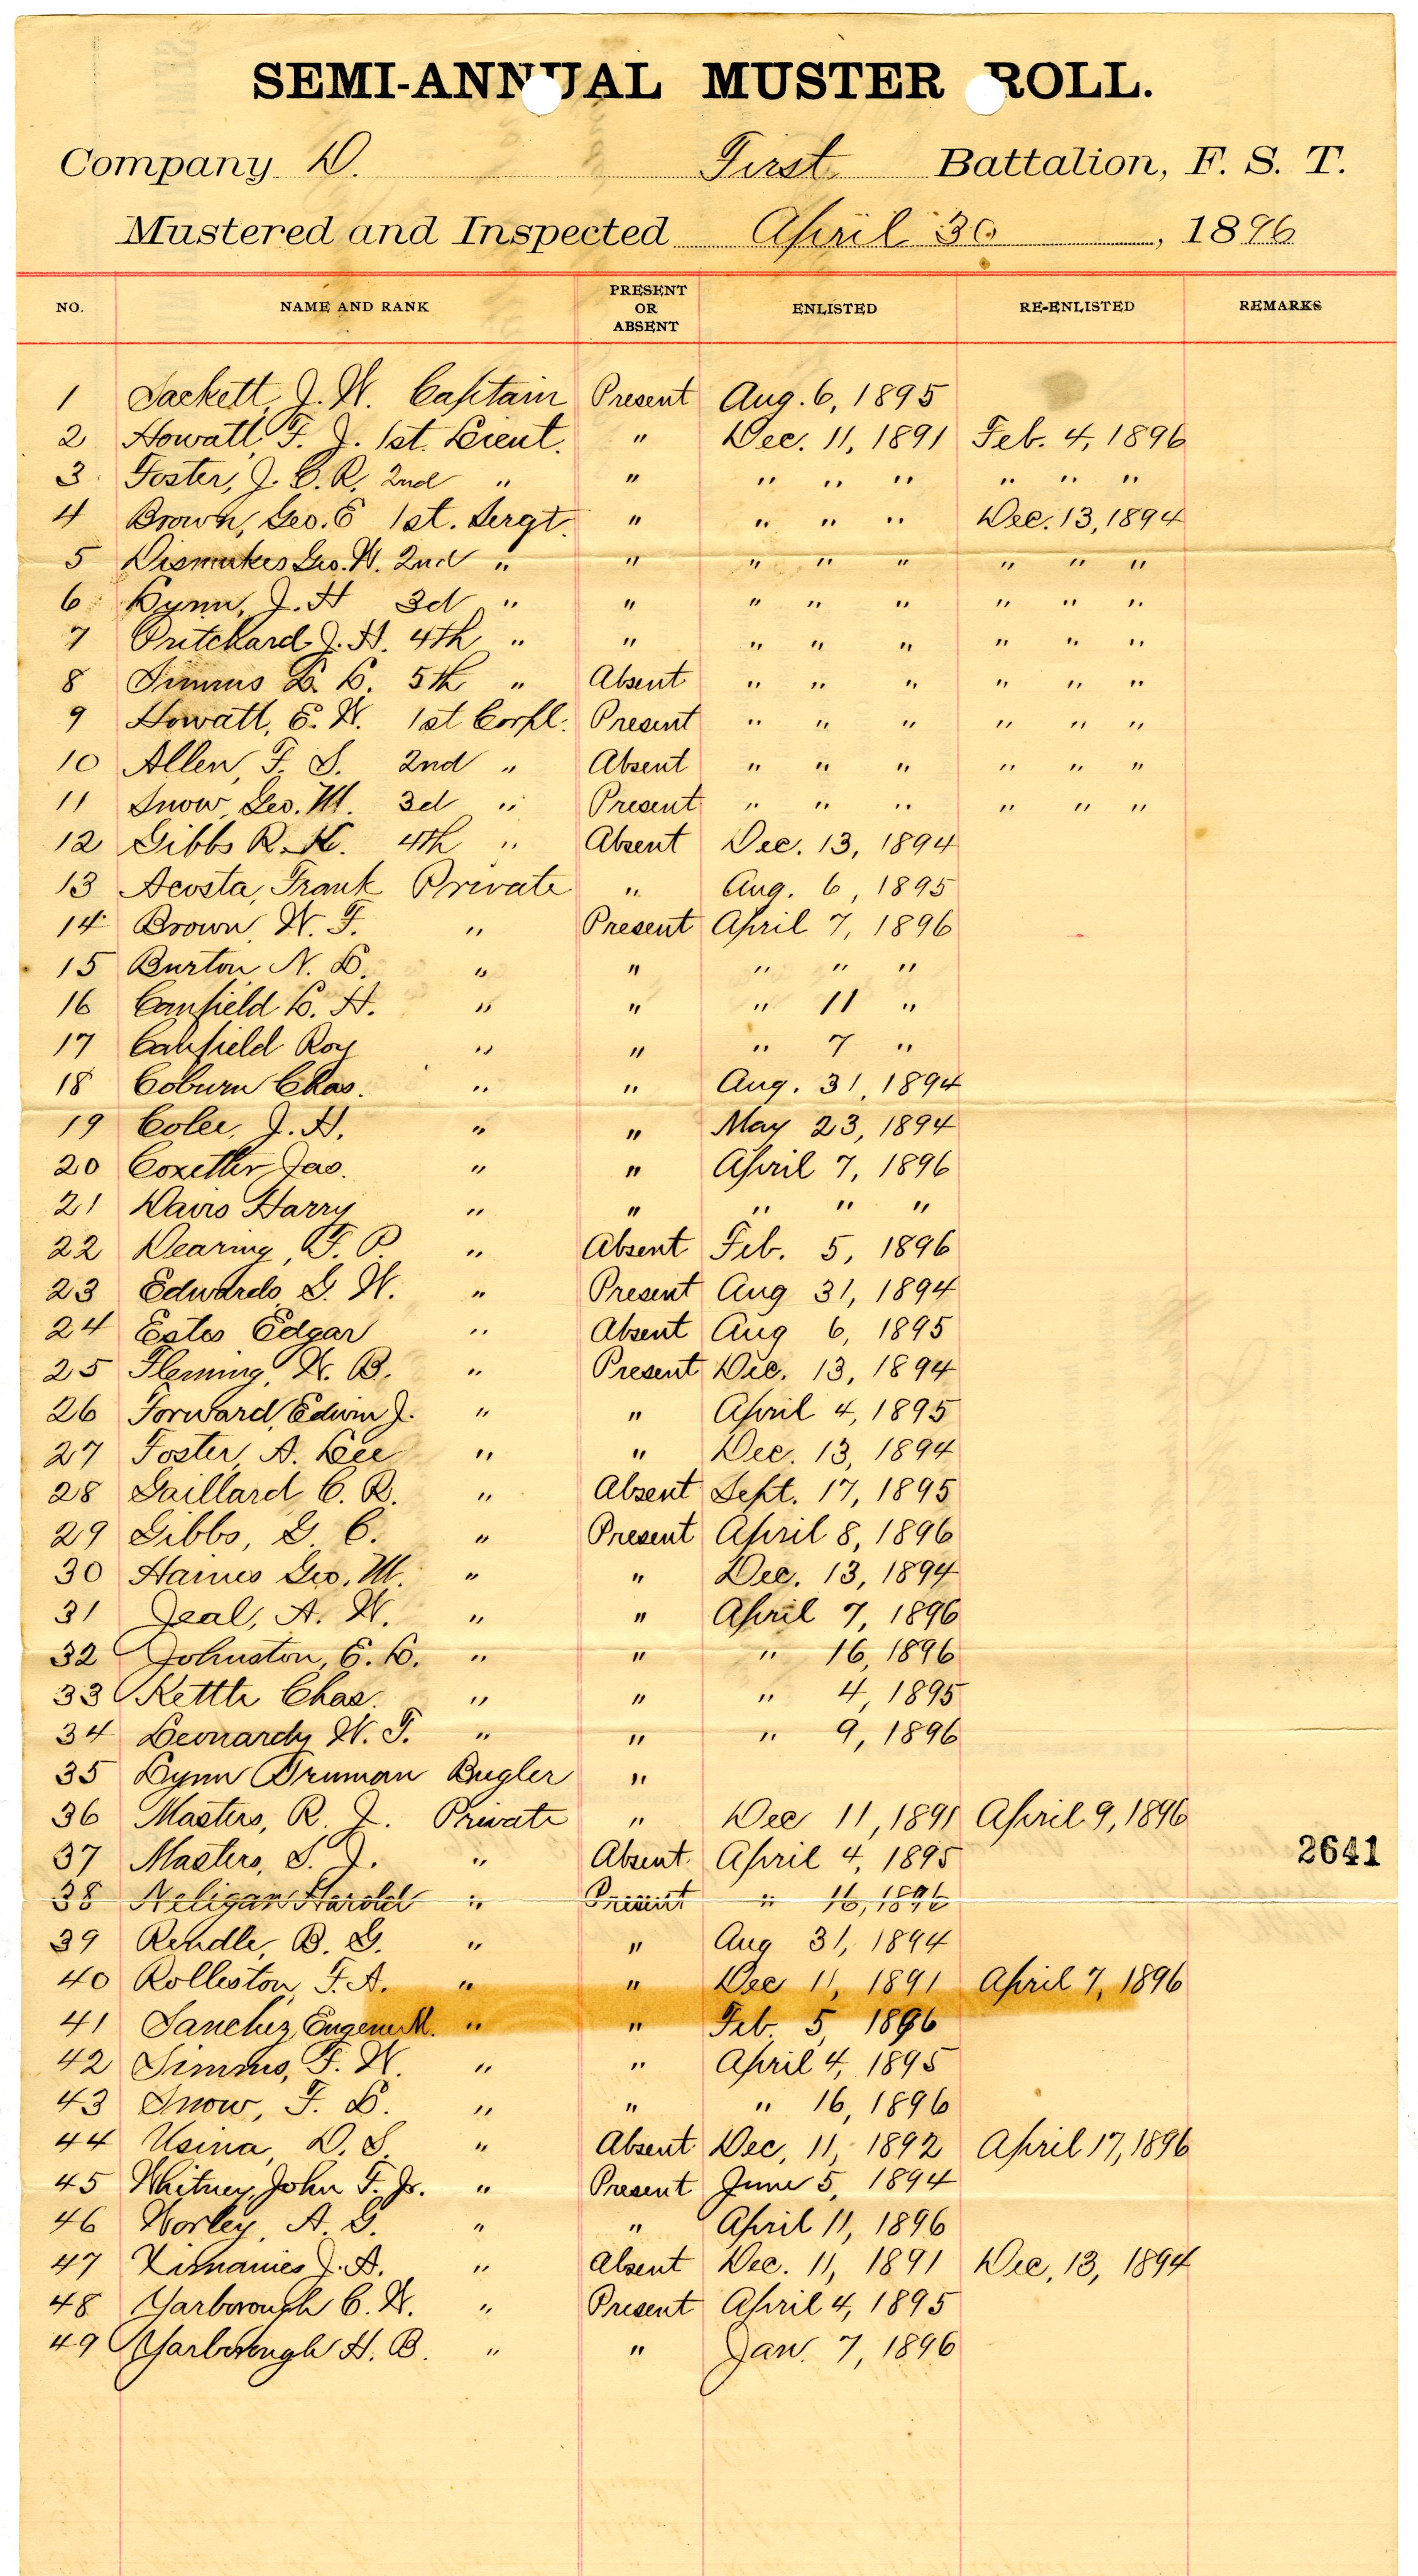 SEMI-ANNUAL MUSTER ROLL.
Company D. First Battalion, F. S. T.
Mustered and Inspected April 30, 1896
NO. NAME AND RANK PRESENT OR ABSENT ENLISTED RE-ENLISTED REMARKS
1 Sackett, J. W. Captain Present Aug. 6, 1895
2 Howatt, F. J. 1st. Lieut. " Dec. 11, 1891 Feb. 4, 1896
3 Foster, J. C. R. 2nd " " " " " " " "
4 Brown, Geo. E 1st. Sergt. " " " " Dec. 13, 1894
5 Dismukes Geo. W. 2nd " " " " " " " "
6 Lynn, J. H 3d " " " " " " " "
7 Pritchard J. H. 4th " " " " " " " "
8 Simms L. L. 5th " Absent " " " " " "
9 Howatt, E. W. 1st Corpl. Present " " " " " "
10 Allen, F. S. 2nd " Absent " " " " " "
11 Snow, Geo. M. 3d " Present " " " " " "
12 Gibbs R. K. 4th " Absent Dec. 13, 1894
13 Acosta, Frank Private " Aug. 6, 1895
14 Brown, W. F. " Present April 7, 1896
15 Burton N. L. " " " " "
16 Canfield L. H. " " " 11 "
17 Canfield Roy " " " 7 "
18 Coburn Chas. " " Aug. 31, 1894
19 Colee, J. H. " " May 23, 1894
20 Coxetter Jas. " " April 7, 1896
21 Davis Harry " " " " "
22 Dearing, F. P. " Absent Feb. 5, 1896
23 Edwards, G. W. " Present Aug 31, 1894
24 Estes Edgar " Absent Aug 6, 1895
25 Fleming, W. B. " Present Dec. 13, 1894
26 Forward, Edwin J. " " April 4, 1895
27 Foster, A. Lee " " Dec. 13, 1894
28 Gaillard C. R. " Absent Sept. 17, 1895
29 Gibbs, G. C. " Present April 8, 1896
30 Haines Geo. M. " " Dec. 13, 1894
31 Jeal, A. W. " " April 7, 1896
32 Johnston, E. L. " " " 16, 1896
33 Kettle Chas. " " " 4, 1895
34 Leonardy W. T. " " " 9, 1896
35 Lynn Truman Bugler "
36 Masters, R. J. Private " Dec 11, 1891 April 9, 1896
37 Masters, S. J. " Absent April 4, 1895
2641
38 Neligan Harold " Present " 16, 1896
39 Rendle, B. G. " " Aug 31, 1894
40 Rolleston, F. A. " " Dec 11, 1891 April 7, 1896
41 Sanchez, Eugene M. " " Feb. 5, 1896
42 Simms, F. W. " " April 4, 1895
43 Snow, F. L. " " " 16, 1896
44 Usina, D. S. " Absent Dec, 11, 1892 April 17, 1896
45 Whitney, John F. Jr. " Present June 5, 1894
46 Worley, A. G. " " April 11, 1896
47 Ximanies J. A. " Absent Dec. 11, 1891 Dec, 13, 1894
48 Yarborough C. W. " Present April 4, 1895
49 Yarborough H. B. " " Jan. 7, 1896